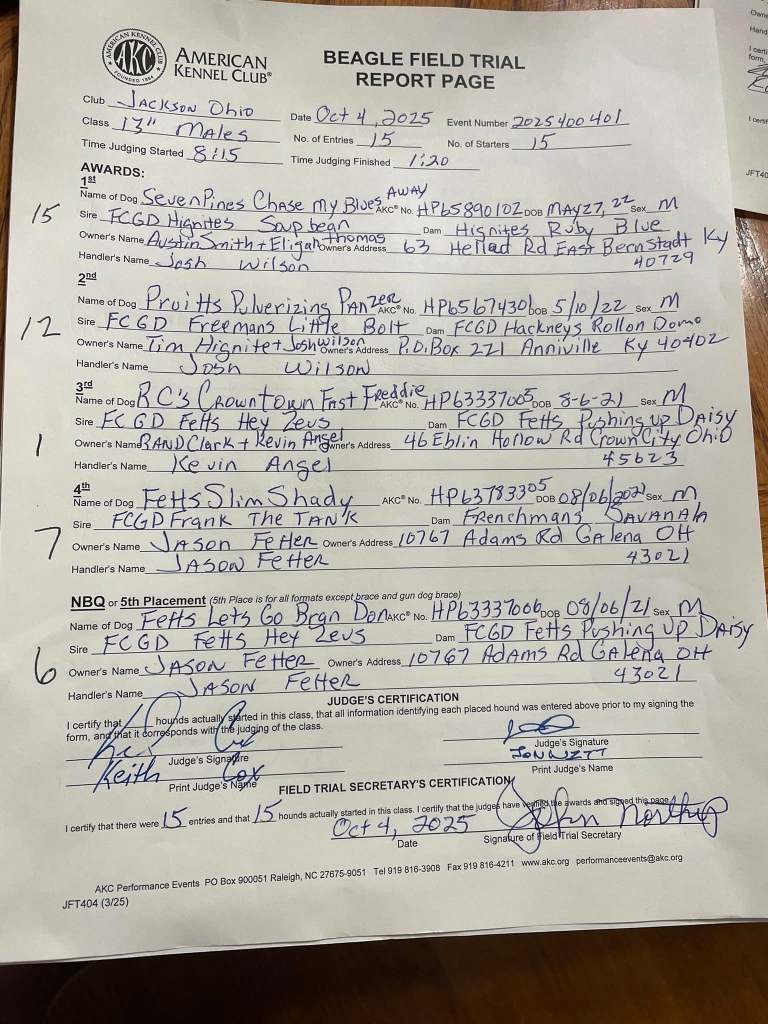 AMERICAN KENNEL CLUB
AKC
FOUNDED 1884
AMERICAN
KENNEL CLUB®
BEAGLE FIELD TRIAL
REPORT PAGE
Club Jackson Ohio Date Oct 4, 2025 Event Number 2025400401
Class 13" Males No. of Entries 15 No. of Starters 15
Time Judging Started 8:15 Time Judging Finished 1:20
AWARDS:
1st
15 Name of Dog SevenPines Chase My Blues Away AKC® No. HP65890102 DOB May 27, 22 Sex M
Sire FCGD Hignites Soupbean Dam Hignites Ruby Blue
Owner's Name Austin Smith + Eligah Thomas Owner's Address 63 Hellad Rd East Bernstadt Ky
Handler's Name Josh Wilson 40729
2nd
12 Name of Dog Pruitts Pulverizing Panzer AKC® No. HP65674301 DOB 5/10/22 Sex M
Sire FCGD Freemans Little Bolt Dam FCGD Hackneys Rollon Domo
Owner's Name Tim Hignite + Josh Wilson Owner's Address P.O. Box 221 Anniville Ky 40402
Handler's Name Josh Wilson
3rd
1 Name of Dog RC's Crowntown Fast Freddie AKC® No. HP63337005 DOB 8-6-21 Sex M
Sire FCGD Fetts Hey Zeus Dam FCGD Fetts Pushing up Daisy
Owner's Name RAND Clark + Kevin Angel Owner's Address 46 Eblin Hollow Rd Crown City Ohio
Handler's Name Kevin Angel 45623
4th
7 Name of Dog Fetts Slim Shady AKC® No. HP63783305 DOB 08/06/2021 Sex M
Sire FCGD Frank The Tank Dam Frenchmans Savanala
Owner's Name Jason Fetter Owner's Address 10767 Adams Rd Galena OH
Handler's Name Jason Fetter 43021
NBQ or 5th Placement (5th Place is for all formats except brace and gun dog brace)
6 Name of Dog Fetts Lets Go Bran Don AKC® No. HP63337006 DOB 08/06/21 Sex M
Sire FCGD Fetts Hey Zeus Dam FCGD Fetts Pushing Up Daisy
Owner's Name Jason Fetter Owner's Address 10767 Adams Rd Galena OH
Handler's Name Jason Fetter 43021
JUDGE'S CERTIFICATION
I certify that hounds actually started in this class, that all information identifying each placed hound was entered above prior to my signing the
form, and that it corresponds with the judging of the class.
Judge's Signature Judge's Signature
Keith Cox Jon Witt
Print Judge's Name Print Judge's Name
FIELD TRIAL SECRETARY'S CERTIFICATION
I certify that there were 15 entries and that 15 hounds actually started in this class. I certify that the judges have verified the awards and signed this page.
Oct 4, 2025 John Northup
Date Signature of Field Trial Secretary
AKC Performance Events PO Box 900051 Raleigh, NC 27675-9051 Tel 919 816-3908 Fax 919 816-4211 www.akc.org performanceevents@akc.org
JFT404 (3/25)
I certi
form,
JFT40